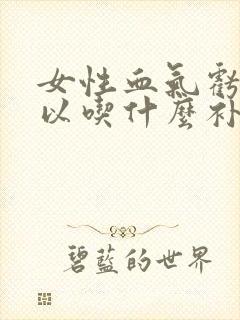 女性血气虧
以喫什麼补
碧蓝的世界